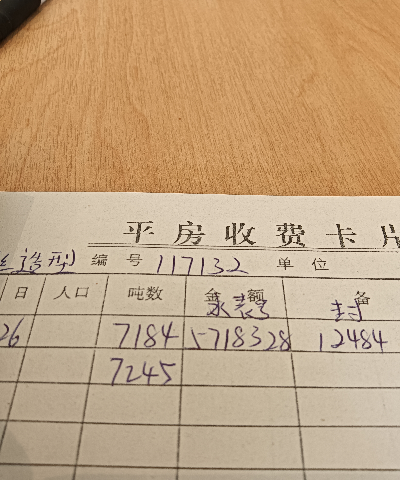 平房收费卡片
造型 编号 117132 单位
日 人口 吨数 金额 备
水表号 封
26 7184 5718328 12484
7245